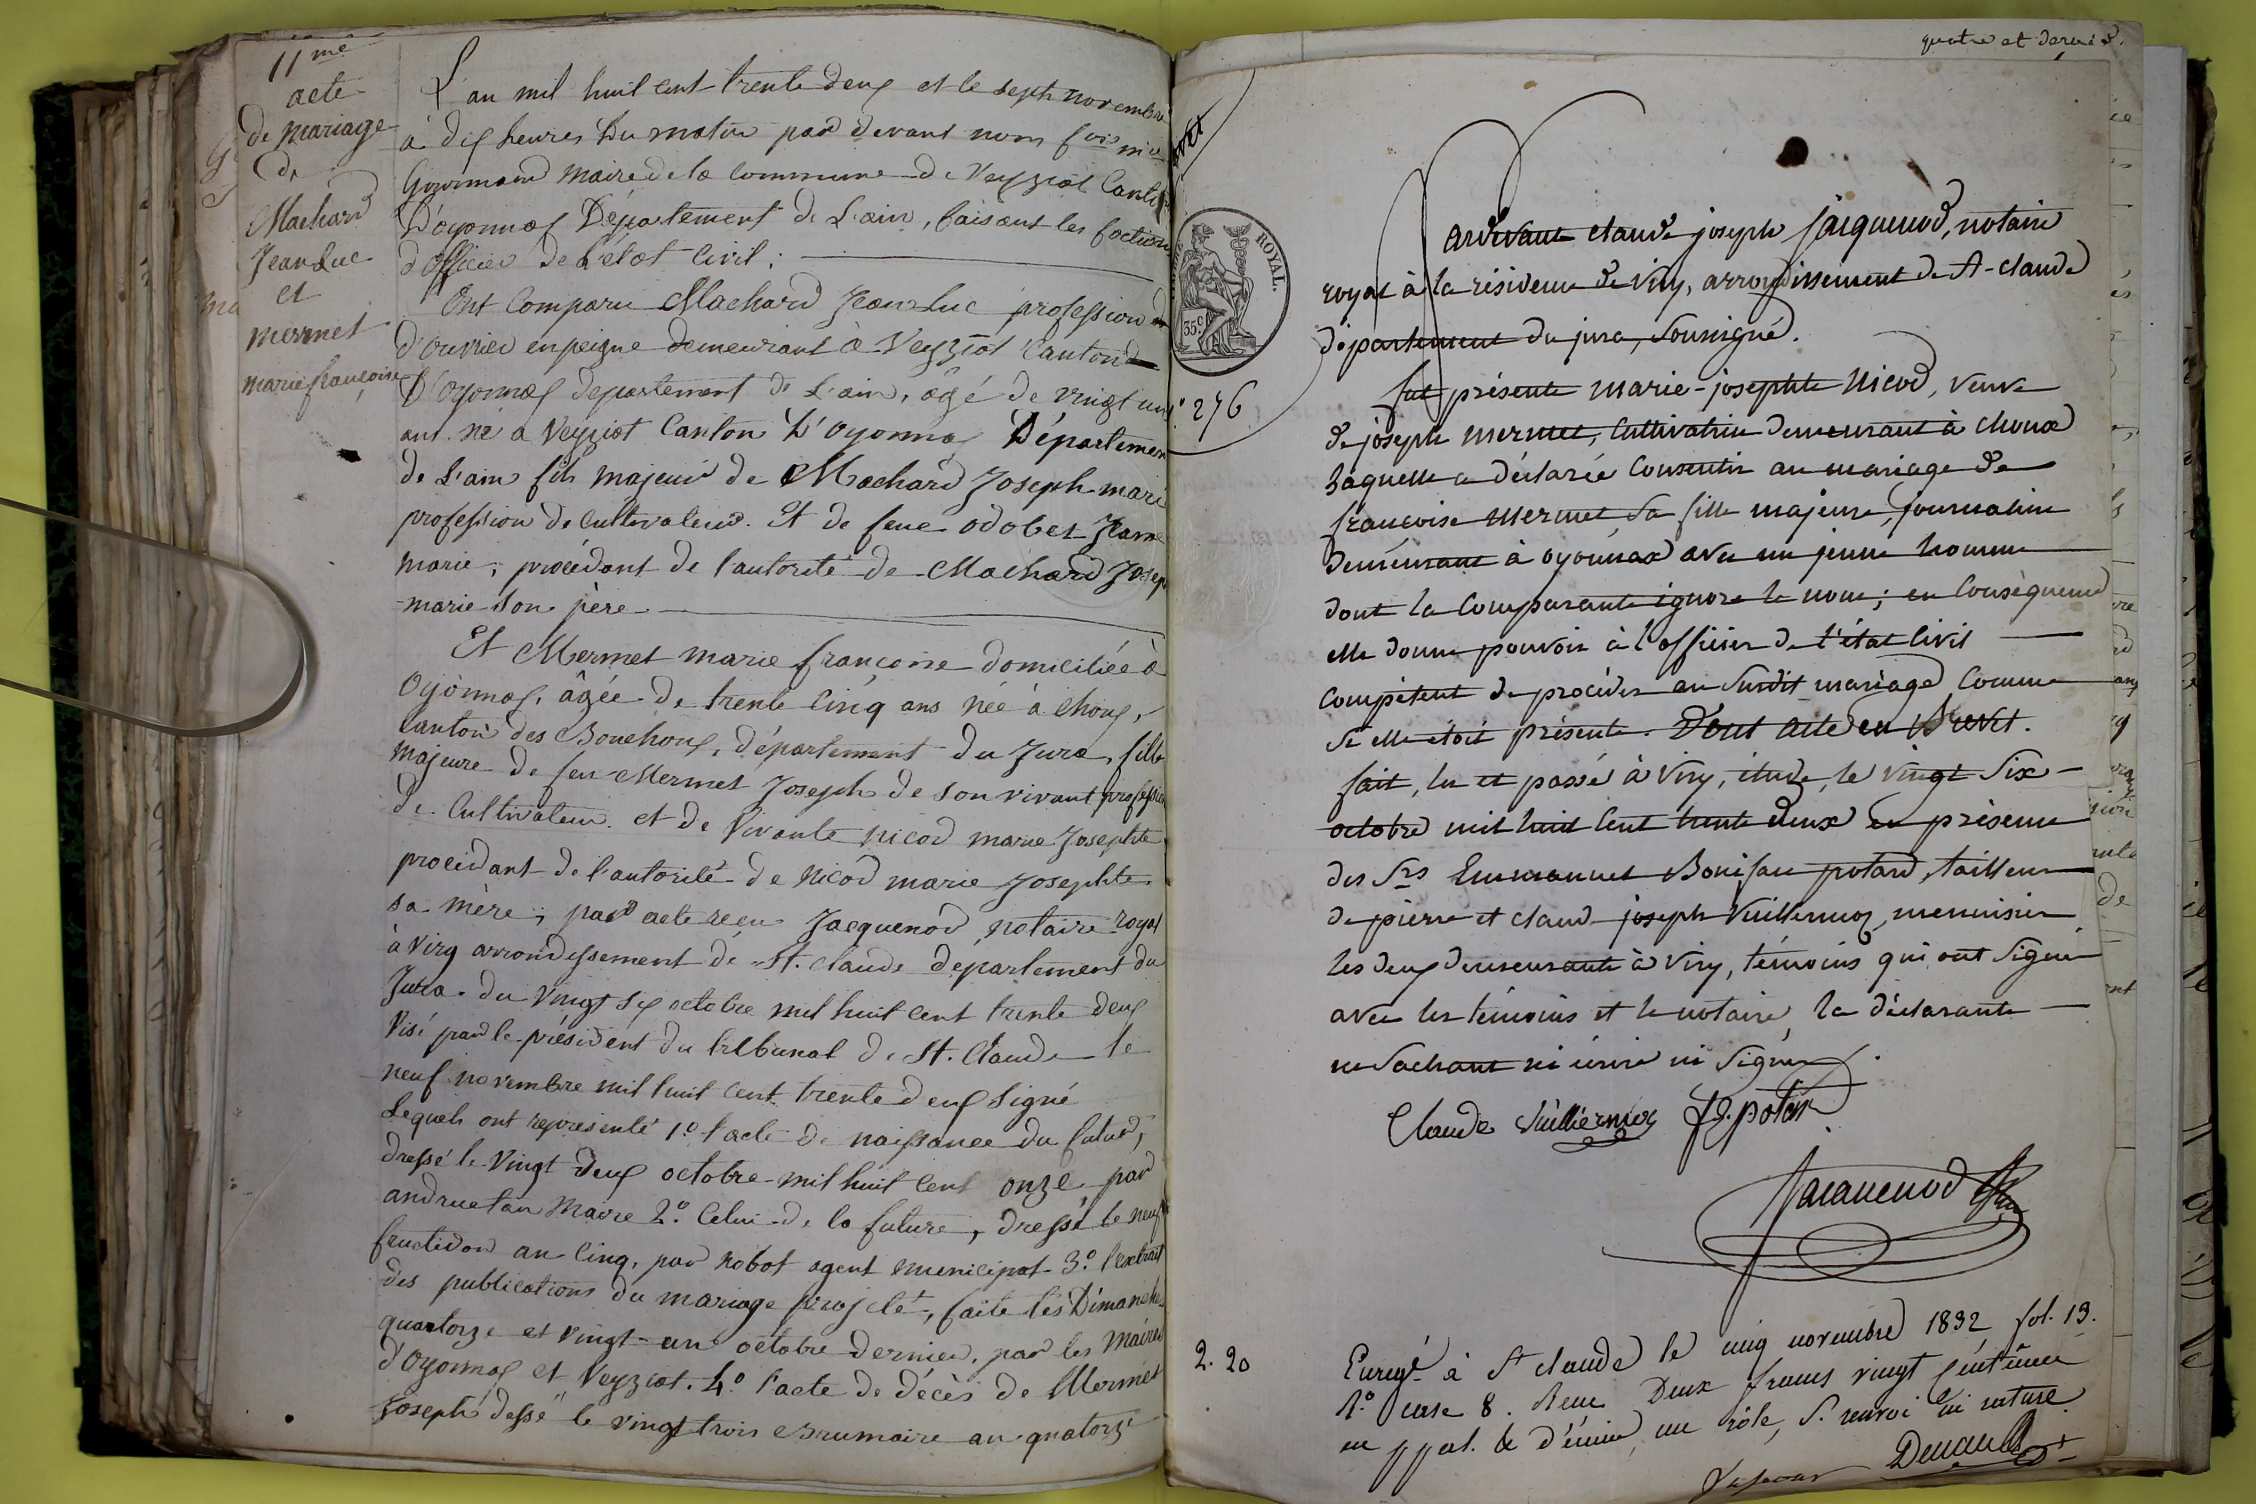 11me
acte
de mariage
de
Machard
Jean Luc
et
mermet
marie françoise
L'an mil huit cent trente deux et le sept novembre
à dix heures du matin par devant nous fois
maire de la commune de Veyziat Canton
D'oyonnax Département de L'ain, faisant les foction
d'officier de L'état civil;
Ont Comparu Machard Jean Luc profession
d'ouvrier en peigne demeurant à Veyziat Canton
D'Oyonnax departement de L'ain, agé de vingt un
ans né à Veyziat Canton D'Oyonnax Département
de L'ain fils majeur de Machard Joseph marie
profession de Cultivateur. Et de feue odobez Jeanne
marie, procédant de l'autorité de Machard Joseph
marie son père
Et Mermet marie françoise domiciliée à
Oyonnax, âgée de trente cinq ans née à choux,
canton des Bouchoux, département du Jura, fille
majeure de feu Mermet Joseph de son vivant profession
de Cultivateur et de vivante nicod marie Josephte
procédant de l'autorité de nicod marie Josephte
sa mère, par acte reçu Jacquenod notaire royal
à viry arrondissement de St. Claude département du
Jura. du vingt six octobre mil huit cent trente deux
visé par le président du tribunal de St. Claude le
neuf novembre mil huit cent trente deux signé
Lequels ont représenté 1º l'acte de naissance du futur,
dressé le vingt deux octobre mil huit cent onze par
andruetan maire 2º. Celui de la future, dressé le neuf
fructidor an cinq, par Robot agent municipal 3º l'extrait
des publications du mariage projeté, faite les Dimanches
quatorze et vingt-un octobre dernier, par les maires
d'Oyonnax et Veyziat. 4º l'acte de décès de Mermet
Joseph dessé le vingt trois Brumaire an quatorze
quatre et
ROYAL.
35c
276
Pardevant claude joseph Jacquenod, notaire
royal à la résidence de Viry, arrondissement de St-claude
département du jura, soussigné.
fut présente marie-josephte Nicod, veuve
de joseph mermet, cultivatrice demeurant à choux
Laquelle a déclarée Consentir au mariage de
françoise mermet sa fille majeure, journalière
demeurant à oyonnax avec un jeune homme
dont la Comparante ignore le nom; en Conséquence
elle donne pouvoir à l'officier de l'état Civil
Compétent de procéder au susdit mariage Comme
si elle étoit présente. Dont acte en Brevet.
fait, lu et passé à Viry, étude, le vingt six
octobre mil huit cent trente deux en présence
des Srs Emmanuel Boniface potard, tailleur
de pierre et claude joseph Vuillermoz, menuisier
les deux demeurants à Viry, témoins qui ont signé
avec les témoins et le notaire, la déclarante
ne sachant ni écrire ni signer.
Claude Vuillermoz potar
Jacquenod
2. 20
Enregé à St claude le cinq novembre 1832 fol. 13.
Rº case 8. Reçu Deux francs vingt centimes
en ppal. & d'écime, un rôle, S. renvoi ni rature